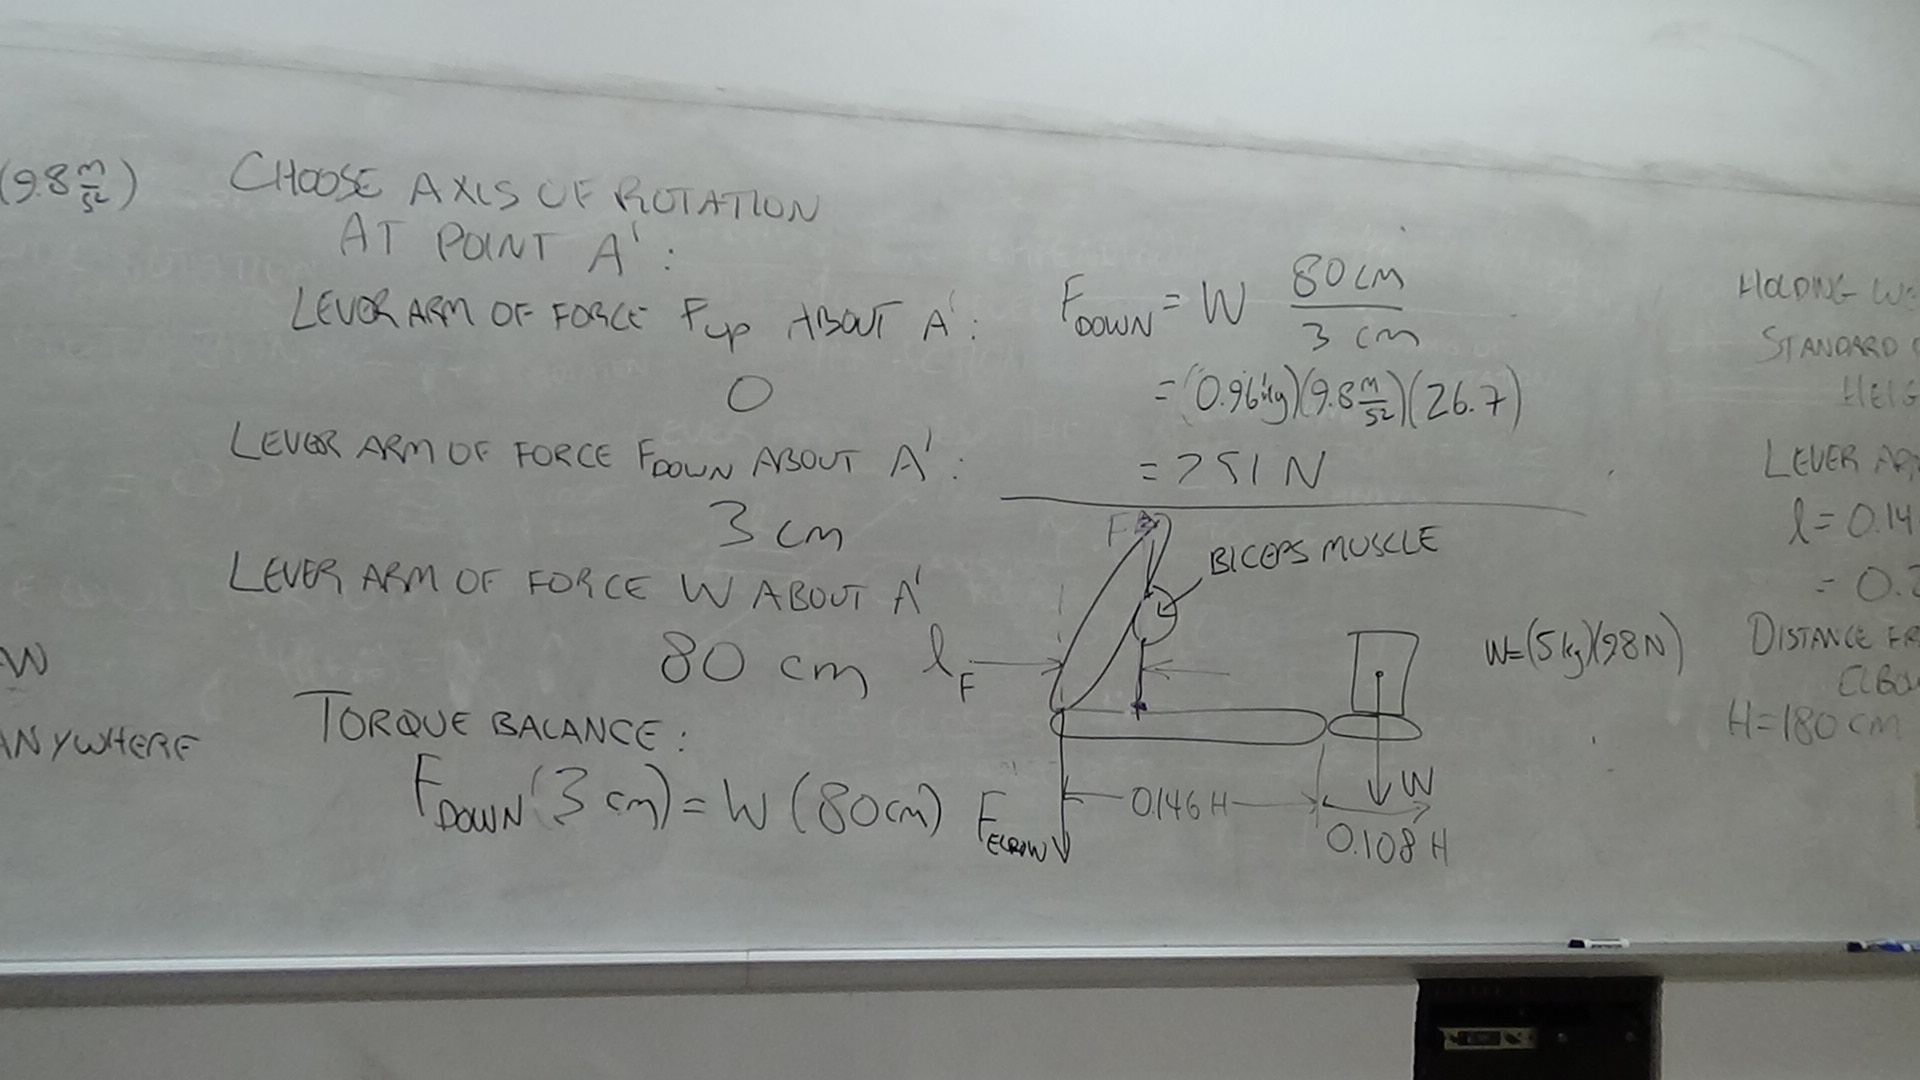 (9.8 m/s²)
CHOOSE AXIS OF ROTATION
AT POINT A':
LEVER ARM OF FORCE Fup ABOUT A':
0
LEVER ARM OF FORCE FDOWN ABOUT A':
3 cm
LEVER ARM OF FORCE W ABOUT A'
80 cm
TORQUE BALANCE:
FDOWN (3 cm) = W (80 cm)
W
ANYWHERE
FDOWN = W 80 cm / 3 cm
= (0.96 kg)(9.8 m/s²)(26.7)
= 251 N
FB
BICEPS MUSCLE
lF
W=(5 kg)(9.8 N)
W
0.146 H
0.108 H
FELBOW
HOLDING
STANDARD
LEVER
l = 0.14
= 0.2
DISTANCE
H = 180 cm